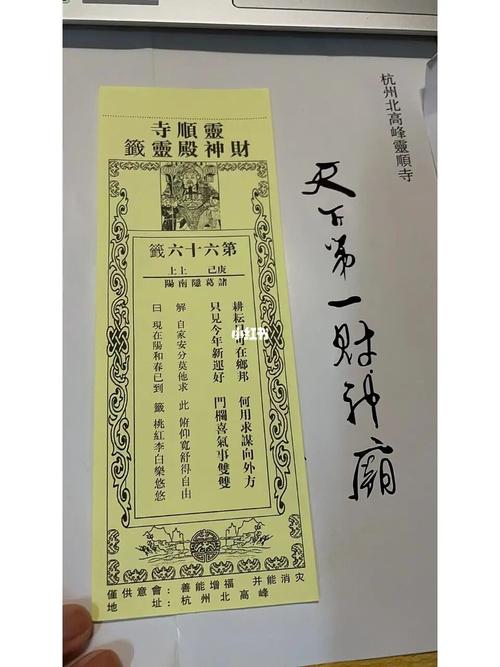 靈順寺
財神殿靈籤
第六十六籤
庚己 上上
諸葛隱南陽
耕耘可在鄉邦 何用求謀向外方
只見今年新運好 門欄喜氣事雙雙
解 自家安分莫他求 此 俯仰寬舒得自由
曰 現在陽和春已到 籤 桃紅李白樂悠悠
僅供意會：善能增福 并能消灾
地 址：杭州北高峰
杭州北高峰靈順寺
天下第一財神廟
小红书